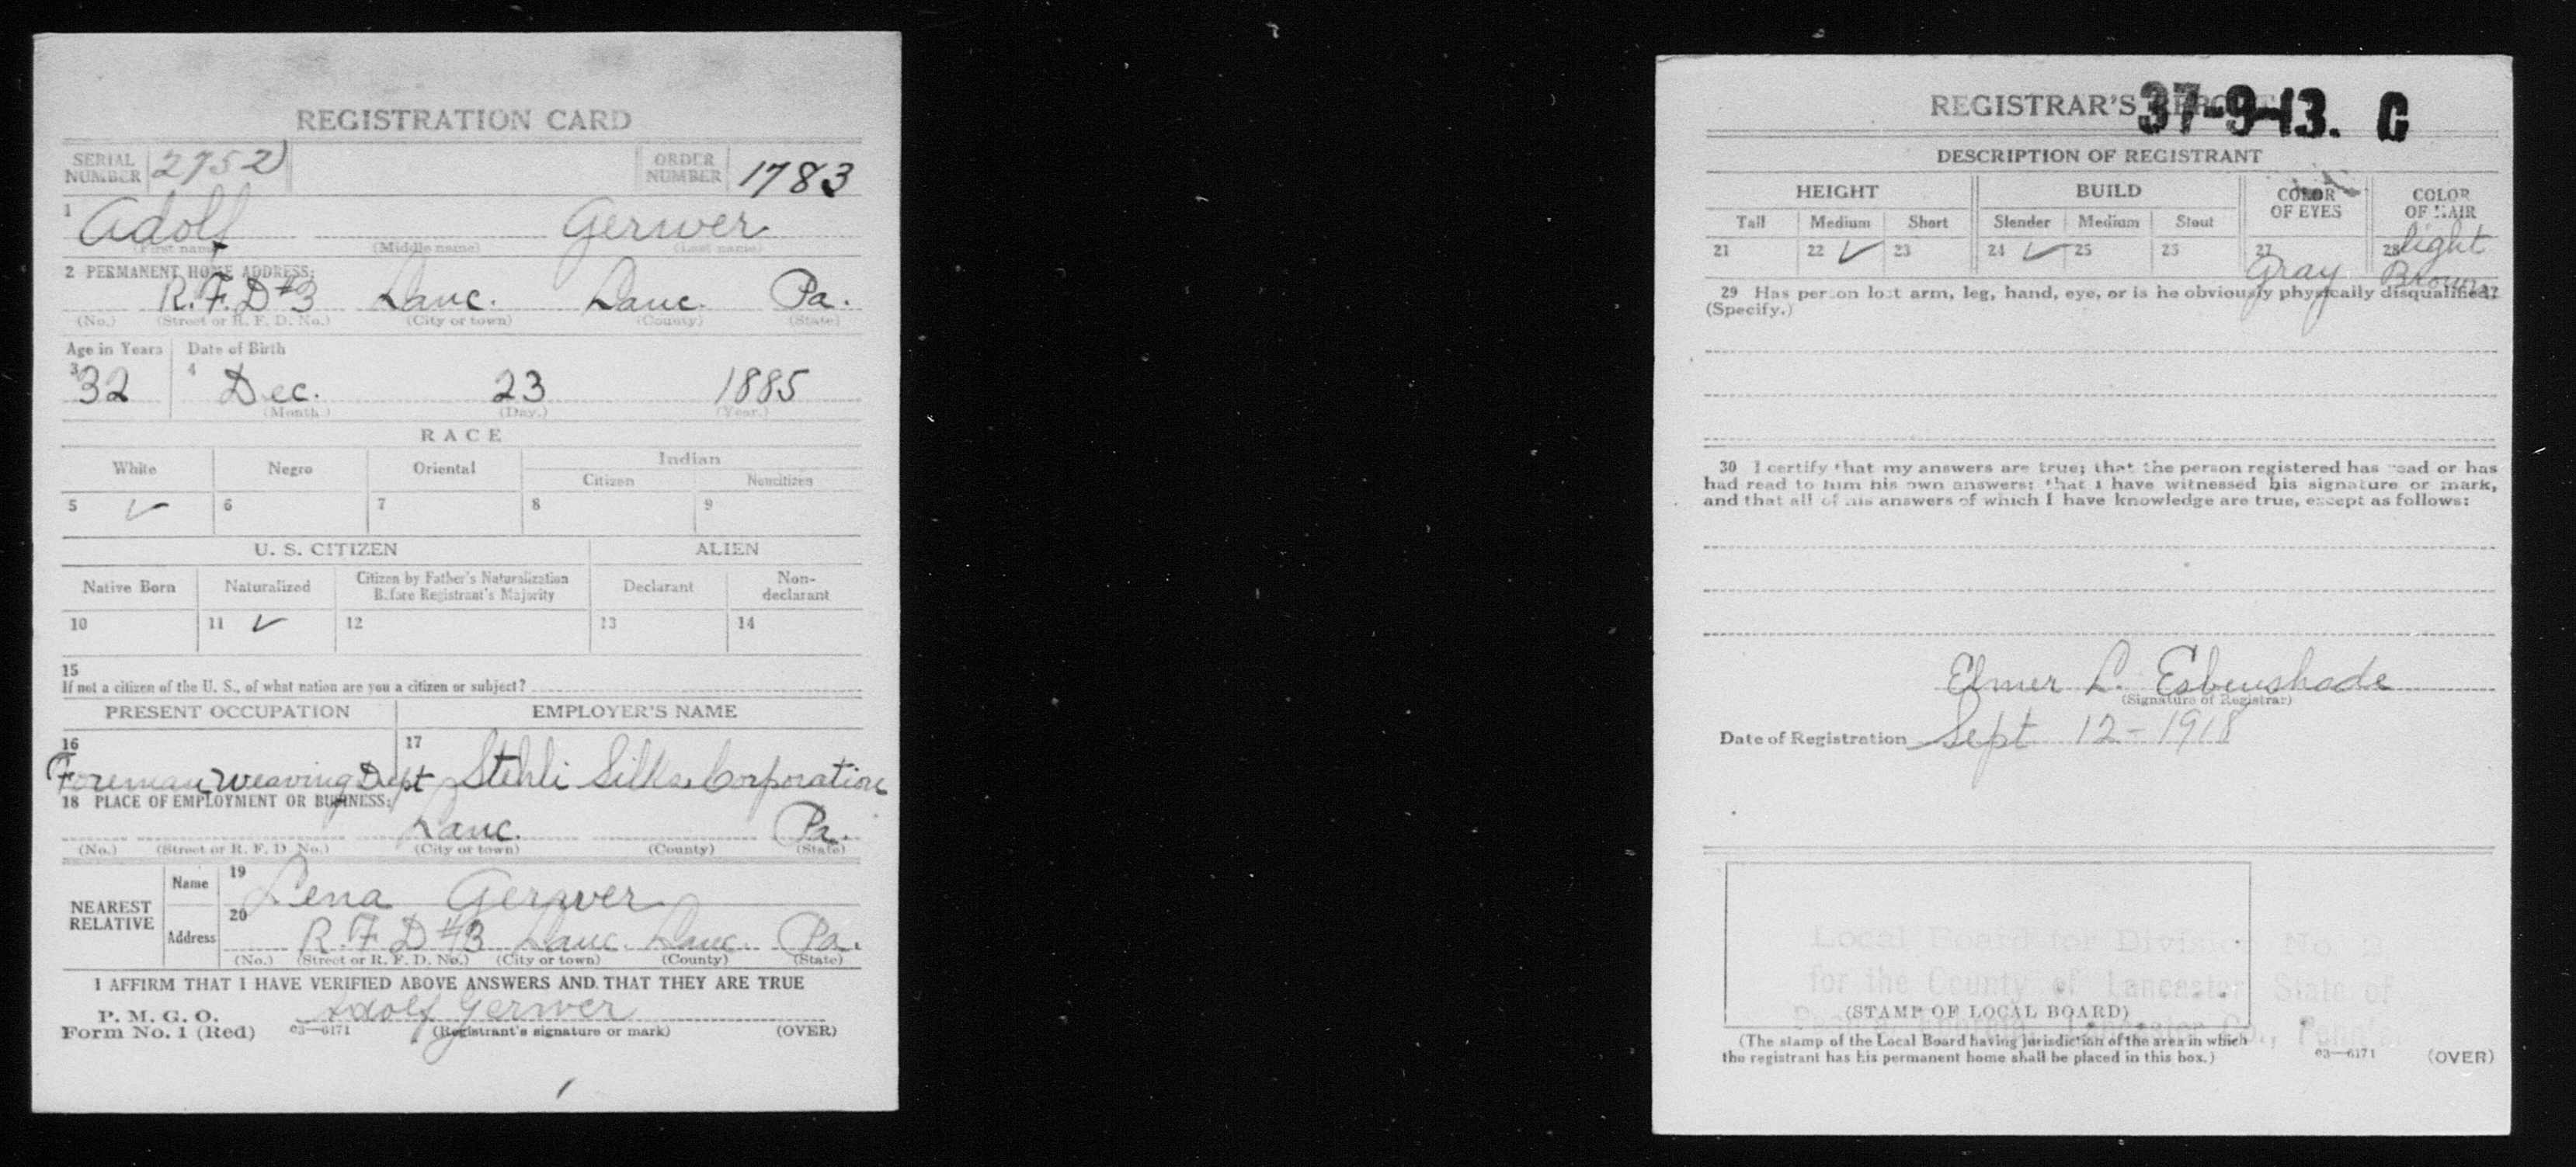 REGISTRATION CARD
SERIAL NUMBER 2752 ORDER NUMBER 1783
1 Adolf Gerwer
(First name) (Middle name) (Last name)
2 PERMANENT HOME ADDRESS:
R.F.D #3 Lanc. Lanc. Pa.
(No.) (Street or R. F. D. No.) (City or town) (County) (State)
Age in Years Date of Birth
3 32 4 Dec. 23 1885
(Month.) (Day.) (Year.)
RACE
White Negro Oriental Indian
Citizen Noncitizen
5 ✓ 6 7 8 9
U. S. CITIZEN ALIEN
Native Born Naturalized Citizen by Father's Naturalization Before Registrant's Majority Declarant Non-declarant
10 11 ✓ 12 13 14
15
If not a citizen of the U. S., of what nation are you a citizen or subject?
PRESENT OCCUPATION EMPLOYER'S NAME
16 17
Foreman Weaving Dept Stehli Silks Corporation
18 PLACE OF EMPLOYMENT OR BUSINESS:
Lanc. Pa.
(No.) (Street or R. F. D. No.) (City or town) (County) (State)
NEAREST RELATIVE
Name 19 Lena Gerwer
Address 20 R.F.D #3 Lanc. Lanc. Pa.
(No.) (Street or R. F. D. No.) (City or town) (County) (State)
I AFFIRM THAT I HAVE VERIFIED ABOVE ANSWERS AND THAT THEY ARE TRUE
P. M. G. O.
Form No. 1 (Red) 03—6171 Adolf Gerwer
(Registrant's signature or mark) (OVER)
REGISTRAR'S REPORT 37-9-13. C
DESCRIPTION OF REGISTRANT
HEIGHT BUILD COLOR OF EYES COLOR OF HAIR
Tall Medium Short Slender Medium Stout
21 22 ✓ 23 24 ✓ 25 26 27 Gray 28 light Brown
29 Has person lost arm, leg, hand, eye, or is he obviously physically disqualified?
(Specify.)
30 I certify that my answers are true; that the person registered has read or has
had read to him his own answers; that I have witnessed his signature or mark,
and that all of his answers of which I have knowledge are true, except as follows:
Elmer L. Esbenshade
(Signature of Registrar)
Date of Registration Sept 12-1918
Local Board for Division No. 2,
for the County of Lancaster, State of
(STAMP OF LOCAL BOARD)
(The stamp of the Local Board having jurisdiction of the area in which
the registrant has his permanent home shall be placed in this box.)
03—6171 (OVER)